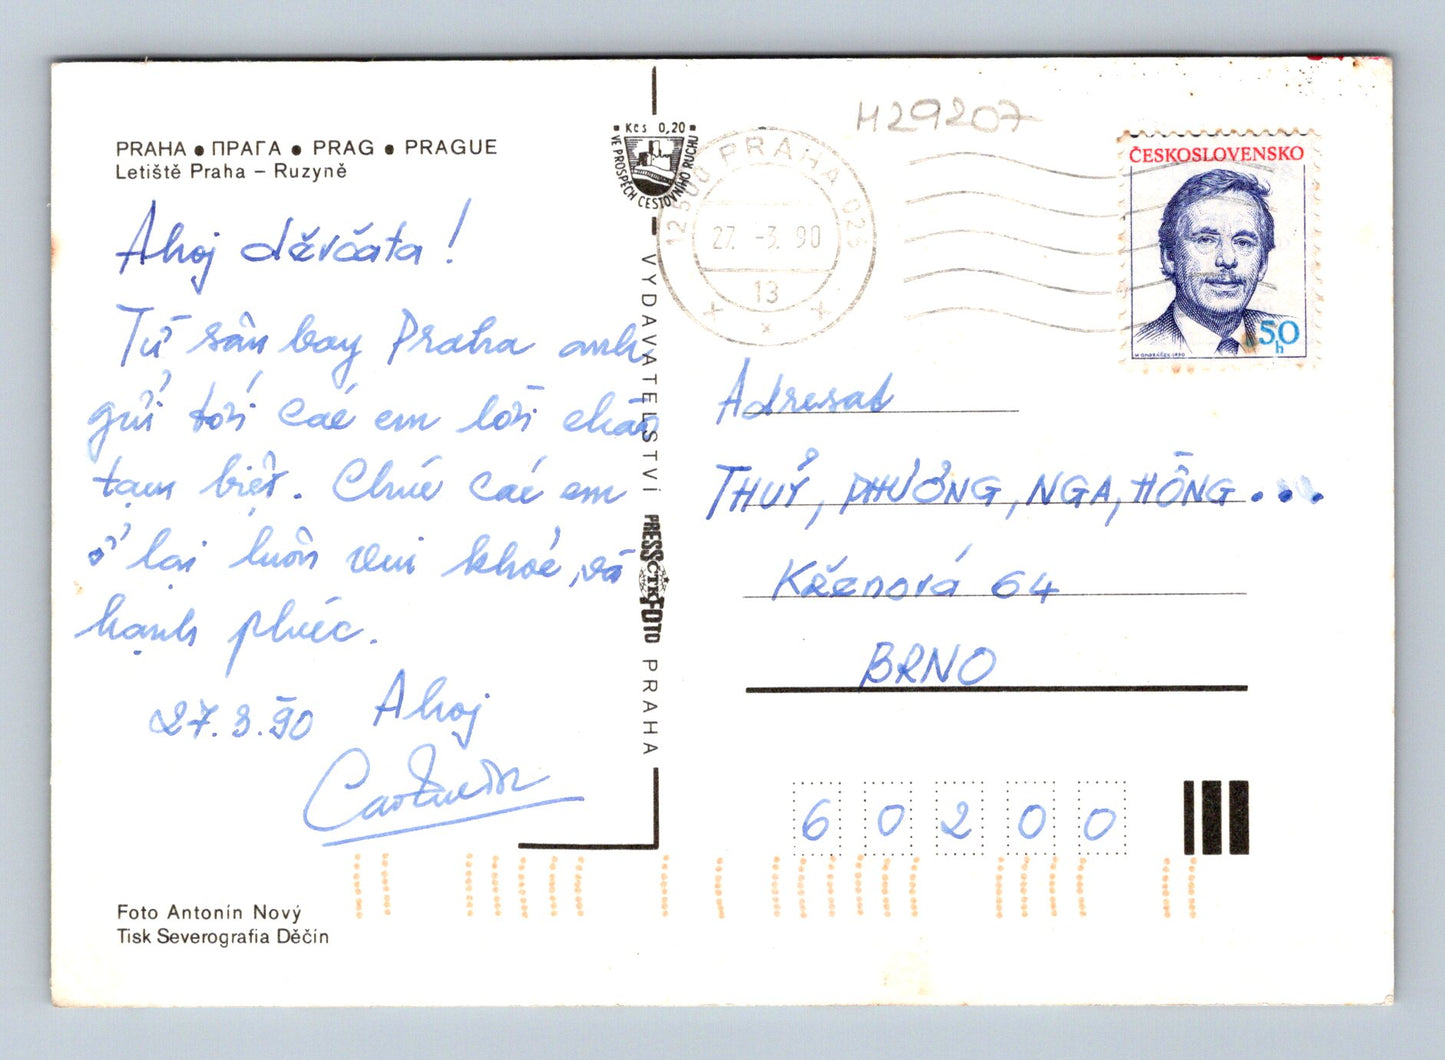 PRAHA ● ПРАГА ● PRAG ● PRAGUE
Letiště Praha – Ruzyně
Ahoj děvčata!
Từ sân bay Praha anh
gửi tới các em lời chào
tạm biệt. Chúc các em
ở lại luôn vui khoẻ, và
hạnh phúc.
27.3.90 Ahoj
Foto Antonín Nový
Tisk Severografia Děčín
Kčs 0,20
VE PROSPĚCH CESTOVNÍHO RUCHU
VYDAVATELSTVÍ PRESSFOTO PRAHA
ČTK
12500 PRAHA 025
27. -3. 90
13
H29207
ČESKOSLOVENSKO
50
h
M. ONDRÁČEK 1990
Adresat
THUỶ, PHƯỞNG, NGA, HỒNG...
Křenová 64
BRNO
60200